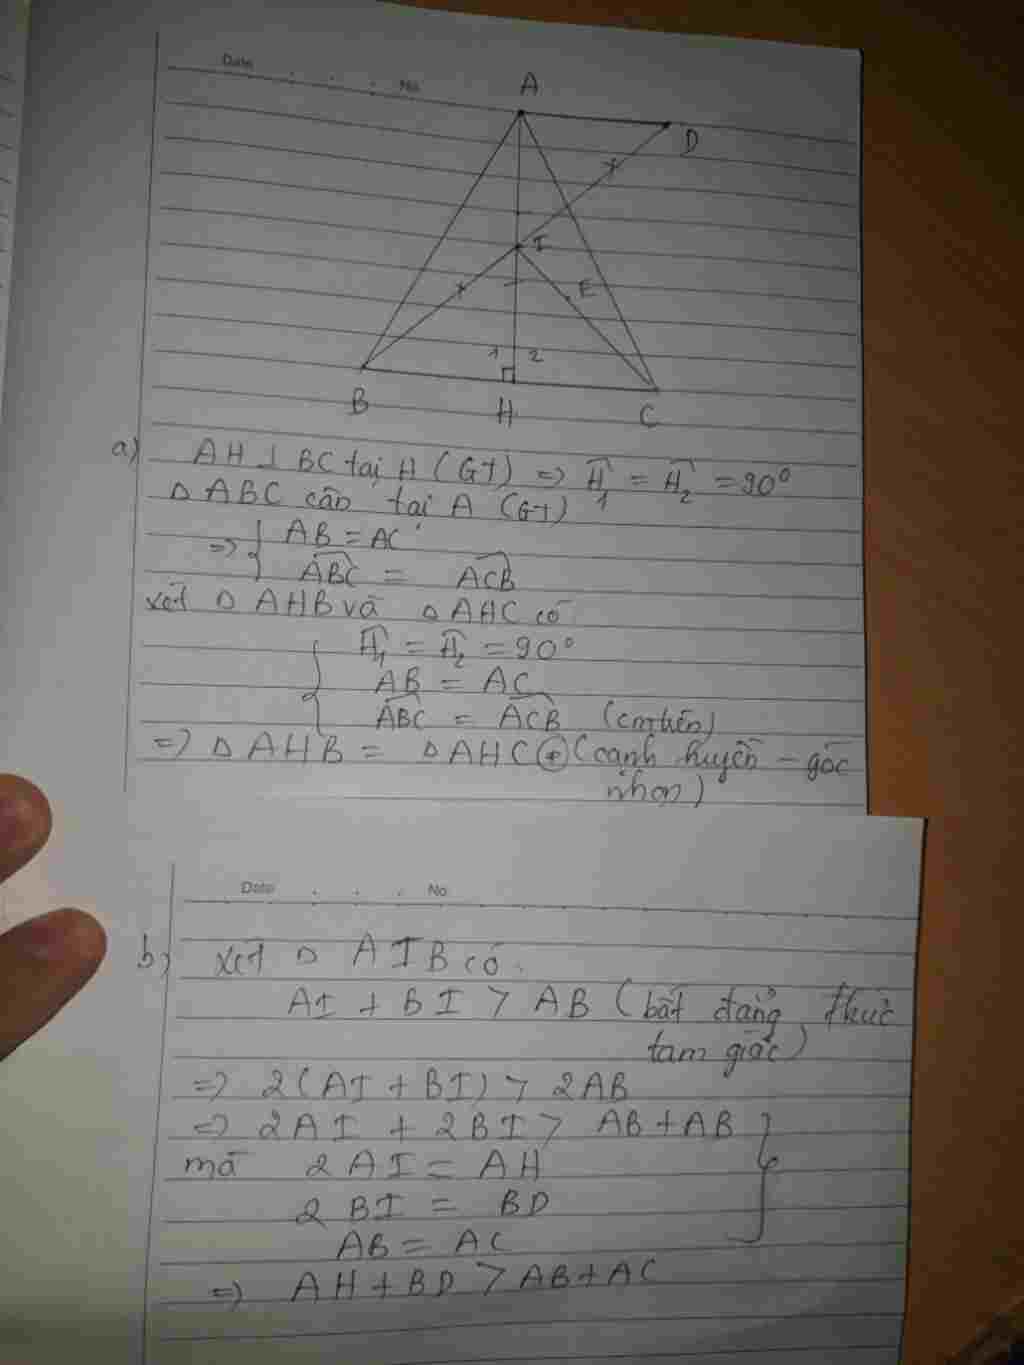 Date No.
A
D
I
E
1 2
B H C
a) AH ⊥ BC tại H (GT) => Ĥ1 = Ĥ2 = 90°
Δ ABC cân tại A (GT)
=> { AB = AC
ABC = ACB
xét Δ AHB và Δ AHC có
Ĥ1 = Ĥ2 = 90°
AB = AC
ABC = ACB (cmtrên)
=> Δ AHB = Δ AHC (cạnh huyền - góc
nhọn)
Date No.
b) xét Δ AIB có
AI + BI > AB (bất đẳng thức
tam giác)
=> 2(AI + BI) > 2AB
=> 2AI + 2BI > AB + AB
mà 2AI = AH
2BI = BD
AB = AC
=> AH + BD > AB + AC